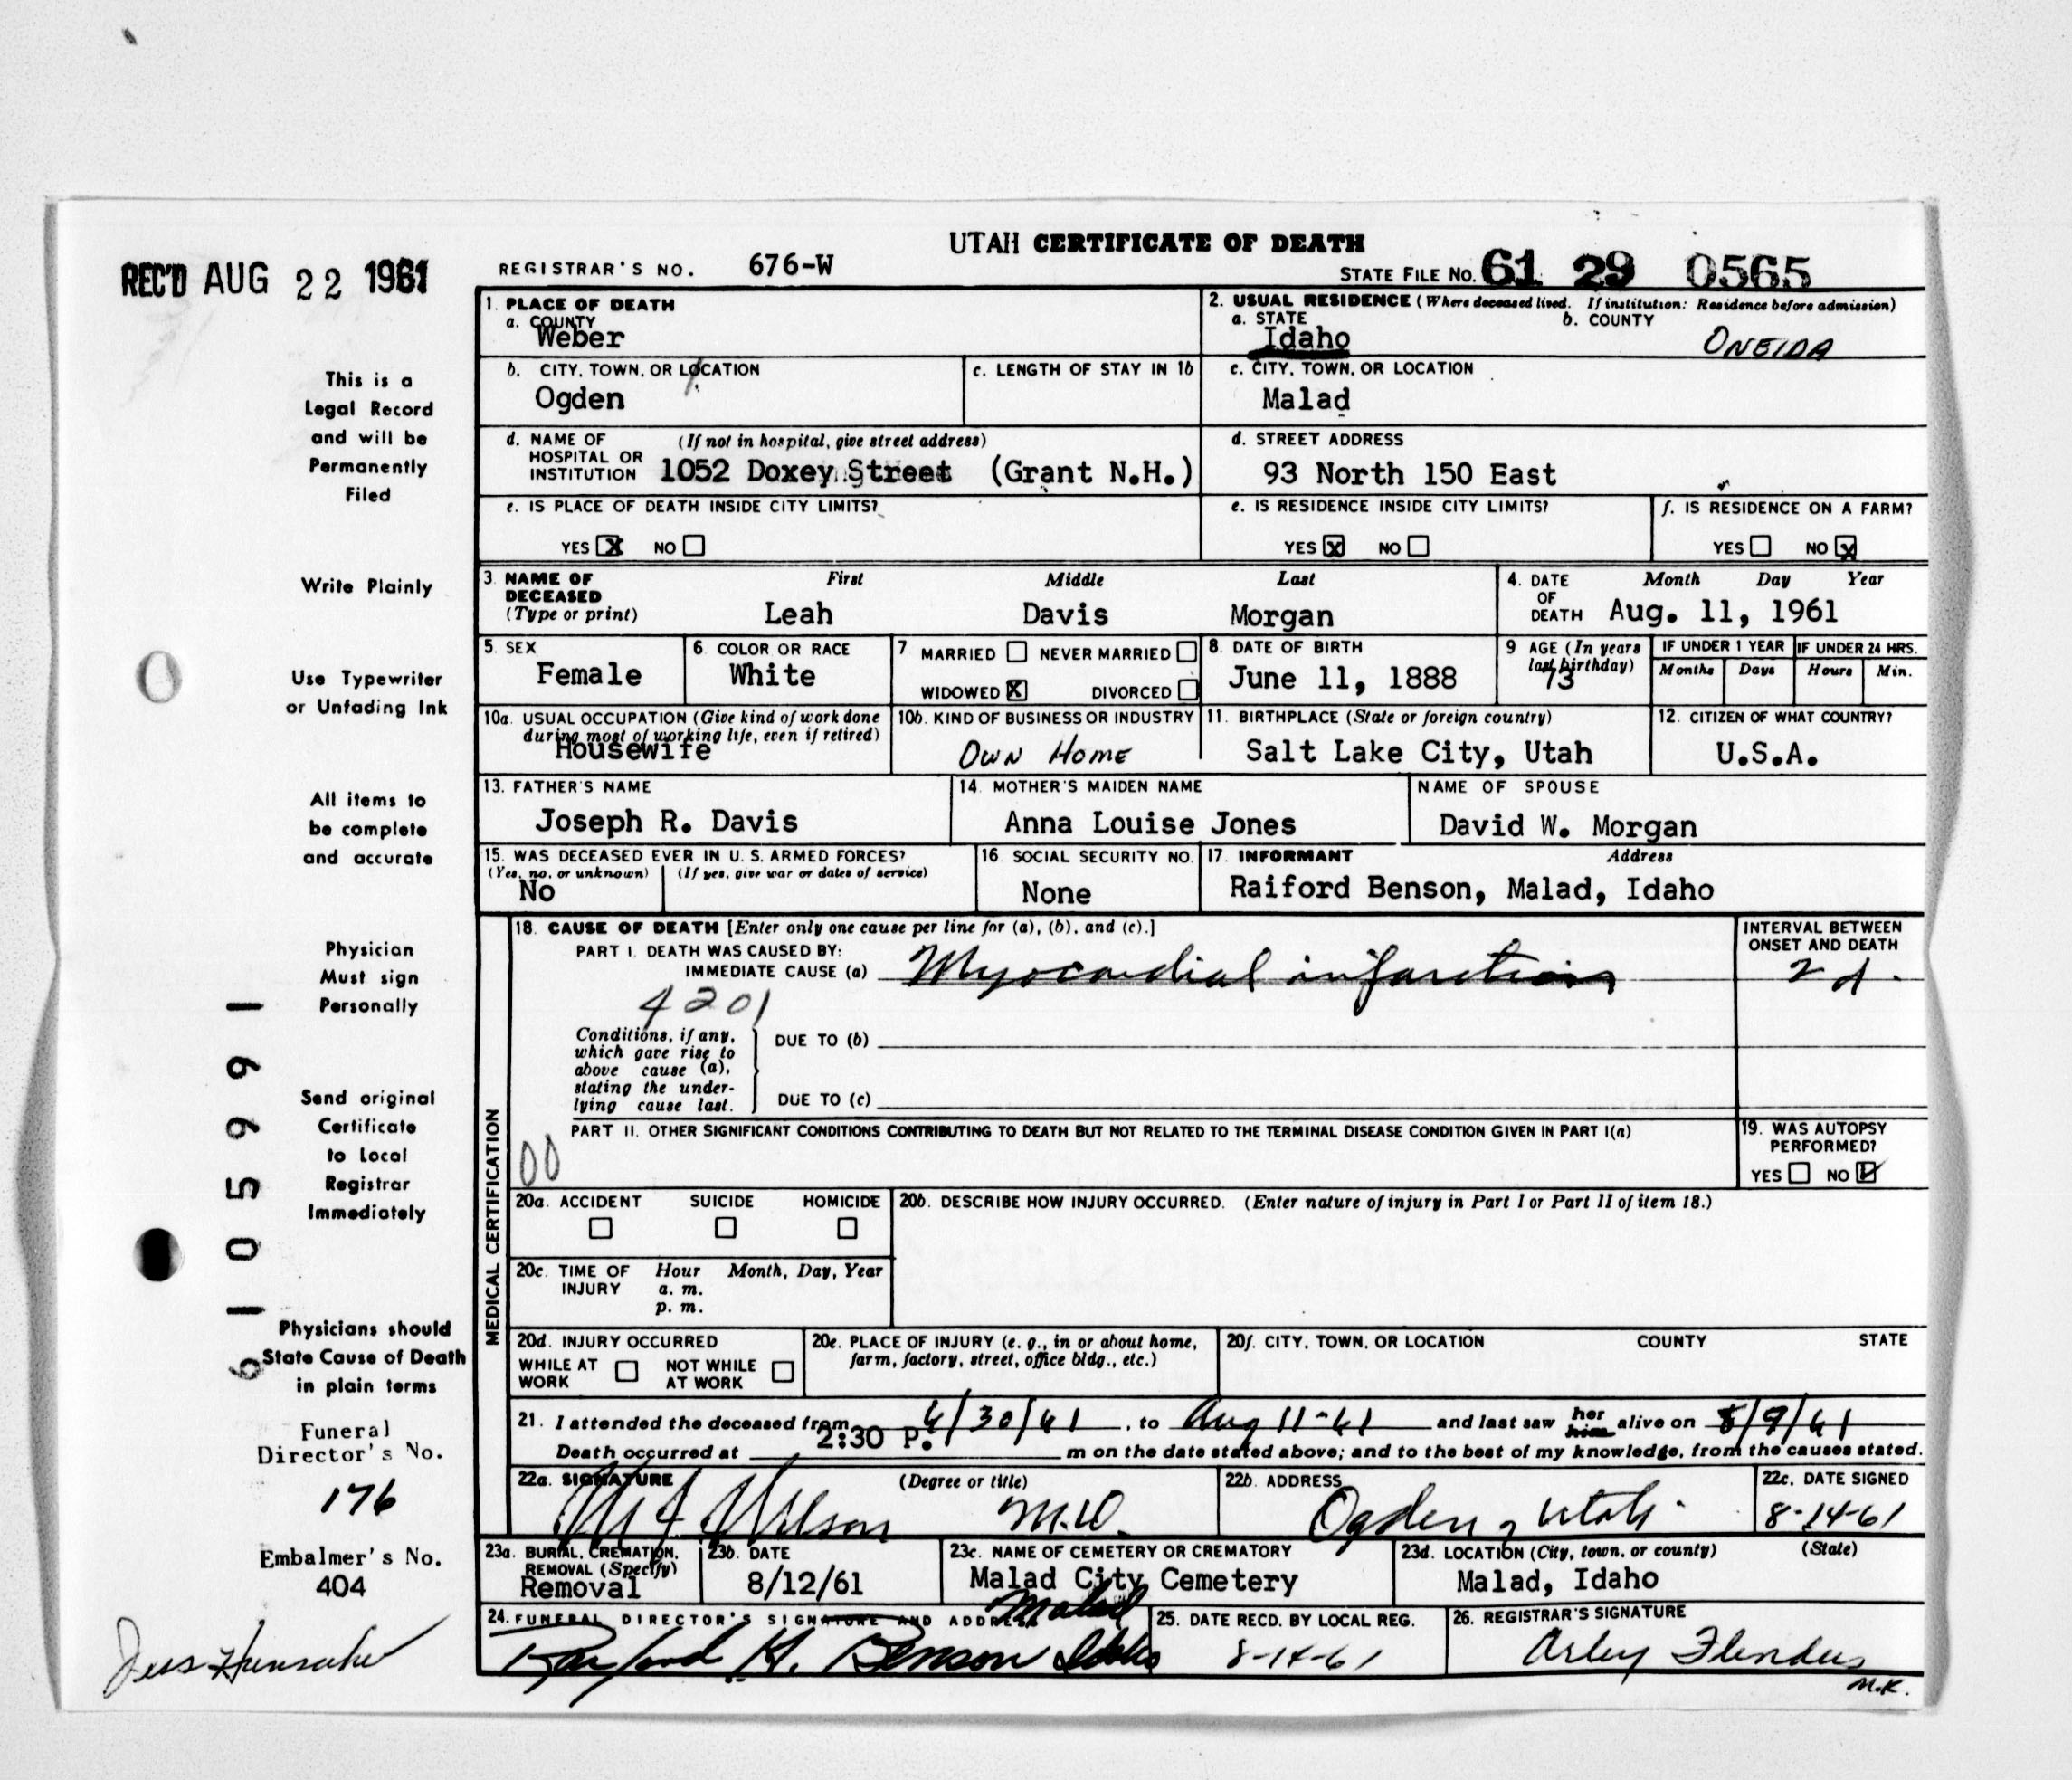 UTAH CERTIFICATE OF DEATH
REC'D AUG 22 1961
REGISTRAR'S NO. 676-W
STATE FILE NO. 61 29 0565
1. PLACE OF DEATH
a. COUNTY
Weber
2. USUAL RESIDENCE (Where deceased lived. If institution: Residence before admission)
a. STATE
Idaho
b. COUNTY
ONEIDA
b. CITY, TOWN, OR LOCATION
Ogden
c. LENGTH OF STAY IN 1b
c. CITY, TOWN, OR LOCATION
Malad
d. NAME OF HOSPITAL OR INSTITUTION
(If not in hospital, give street address)
1052 Doxey Street (Grant N.H.)
d. STREET ADDRESS
93 North 150 East
e. IS PLACE OF DEATH INSIDE CITY LIMITS?
YES X NO
e. IS RESIDENCE INSIDE CITY LIMITS?
YES X NO
f. IS RESIDENCE ON A FARM?
YES NO X
3. NAME OF DECEASED
(Type or print)
First Middle Last
Leah Davis Morgan
4. DATE OF DEATH
Month Day Year
Aug. 11, 1961
5. SEX
Female
6. COLOR OR RACE
White
7. MARRIED NEVER MARRIED
WIDOWED X DIVORCED
8. DATE OF BIRTH
June 11, 1888
9. AGE (In years last birthday)
73
IF UNDER 1 YEAR
Months Days
IF UNDER 24 HRS.
Hours Min.
10a. USUAL OCCUPATION (Give kind of work done during most of working life, even if retired)
Housewife
10b. KIND OF BUSINESS OR INDUSTRY
OWN HOME
11. BIRTHPLACE (State or foreign country)
Salt Lake City, Utah
12. CITIZEN OF WHAT COUNTRY?
U.S.A.
13. FATHER'S NAME
Joseph R. Davis
14. MOTHER'S MAIDEN NAME
Anna Louise Jones
NAME OF SPOUSE
David W. Morgan
15. WAS DECEASED EVER IN U. S. ARMED FORCES?
(Yes, no, or unknown) (If yes, give war or dates of service)
No
16. SOCIAL SECURITY NO.
None
17. INFORMANT Address
Raiford Benson, Malad, Idaho
MEDICAL CERTIFICATION
18. CAUSE OF DEATH [Enter only one cause per line for (a), (b), and (c).]
PART I. DEATH WAS CAUSED BY:
IMMEDIATE CAUSE (a) Myocardial infarction
INTERVAL BETWEEN ONSET AND DEATH
2 d.
4201
Conditions, if any, which gave rise to above cause (a), stating the underlying cause last.
DUE TO (b)
DUE TO (c)
PART II. OTHER SIGNIFICANT CONDITIONS CONTRIBUTING TO DEATH BUT NOT RELATED TO THE TERMINAL DISEASE CONDITION GIVEN IN PART I(a)
00
19. WAS AUTOPSY PERFORMED?
YES NO
20a. ACCIDENT SUICIDE HOMICIDE
20b. DESCRIBE HOW INJURY OCCURRED. (Enter nature of injury in Part I or Part II of item 18.)
20c. TIME OF INJURY Hour Month, Day, Year
a. m.
p. m.
20d. INJURY OCCURRED
WHILE AT WORK NOT WHILE AT WORK
20e. PLACE OF INJURY (e. g., in or about home, farm, factory, street, office bldg., etc.)
20f. CITY, TOWN, OR LOCATION COUNTY STATE
21. I attended the deceased from 6/30/61, to Aug 11-61 and last saw her him alive on 8/9/61
Death occurred at 2:30 P. m on the date stated above; and to the best of my knowledge, from the causes stated.
22a. SIGNATURE (Degree or title)
Wilson M.D.
22b. ADDRESS
Ogden, Utah
22c. DATE SIGNED
8-14-61
23a. BURIAL, CREMATION, REMOVAL (Specify)
Removal
23b. DATE
8/12/61
23c. NAME OF CEMETERY OR CREMATORY
Malad City Cemetery
23d. LOCATION (City, town, or county) (State)
Malad, Idaho
24. FUNERAL DIRECTOR'S SIGNATURE AND ADDRESS
Raiford H. Benson Malad Idaho
25. DATE RECD. BY LOCAL REG.
8-14-61
26. REGISTRAR'S SIGNATURE
M.K.
This is a
Legal Record
and will be
Permanently
Filed
Write Plainly
Use Typewriter
or Unfading Ink
All items to
be complete
and accurate
Physician
Must sign
Personally
Send original
Certificate
to Local
Registrar
Immediately
Physicians should
State Cause of Death
in plain terms
Funeral
Director's No.
176
Embalmer's No.
404
Jess Hunsaker
6105991